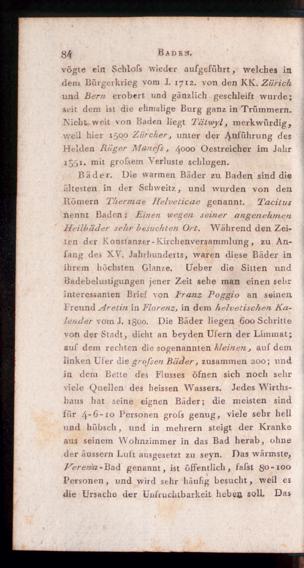 84 BADEN.
vögte ein Schloſs wieder aufgeführt, welches in
dem Bürgerkrieg vom J. 1712. von den KK. Zürich
und Bern erobert und gänzlich geschleift wurde;
seit dem ist die ehmalige Burg ganz in Trümmern.
Nicht weit von Baden liegt Tätwyl, merkwürdig,
weil hier 1500 Zürcher, unter der Anführung des
Helden Rüger Maneſs, 4000 Oestreicher im Jahr
1351. mit groſsem Verluste schlugen.
Bäder. Die warmen Bäder zu Baden sind die
ältesten in der Schweitz, und wurden von den
Römern Thermae Helveticae genannt. Tacitus
nennt Baden: Einen wegen seiner angenehmen
Heilbäder sehr besuchten Ort. Während den Zei-
ten der Konstanzer-Kirchenversammlung, zu An-
fang des XV. Jahrhunderts, waren diese Bäder in
ihrem höchsten Glanze. Ueber die Sitten und
Badebelustigungen jener Zeit sehe man einen sehr
interessanten Brief von Franz Poggio an seinen
Freund Aretin in Florenz, in dem helvetischen Ka-
lender vom J. 1800. Die Bäder liegen 600 Schritte
von der Stadt, dicht an beyden Ufern der Limmat;
auf dem rechten die sogenannten kleinen, auf dem
linken Ufer die groſsen Bäder, zusammen 200; und
in dem Bette des Flusses öfnen sich noch sehr
viele Quellen des heissen Wassers. Jedes Wirths-
haus hat seine eignen Bäder; die meisten sind
für 4-6-10 Personen groſs genug, viele sehr hell
und hübsch, und in mehrern steigt der Kranke
aus seinem Wohnzimmer in das Bad herab, ohne
der äussern Luft ausgesetzt zu seyn. Das wärmste,
Verena-Bad genannt, ist öffentlich, faſst 80-100
Personen, und wird sehr häufig besucht, weil es
die Ursache der Unfruchtbarkeit heben soll. Das